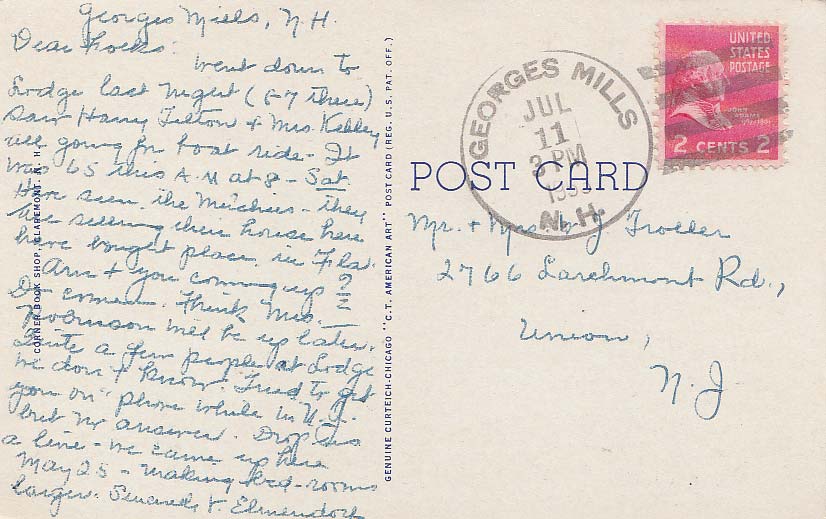 Georges Mills, N.H.
Dear Folks:
Went down to
Lodge last night (6-7 there)
Saw Harry Tilton + Mrs. Kelley
all going for boat ride - It
was 65 this A.M at 8 - Sat.
Have seen the - they
are selling their house here
have bought place in Fla.
Ann + you coming up?
Do come. Think Mrs.
Robinson will be up later.
Quite a few people at Lodge
we don't know. Tried to get
you on 'phone while in N.J.
but no answer. Drop us
a line - we came up here
May 25 - making bed-rooms
larger. Sincerely, V. Elmendorf
CORNER BOOK SHOP, CLAREMONT, N. H.
GENUINE CURTEICH-CHICAGO "C.T. AMERICAN ART" POST CARD (REG. U.S. PAT. OFF.)
GEORGES MILLS
JUL
11
3 PM
N.H.
UNITED
STATES
POSTAGE
JOHN
ADAMS
2 CENTS 2
POST CARD
Mr. + Mrs. J Troller
2766 Larchmont Rd.,
Union,
N.J